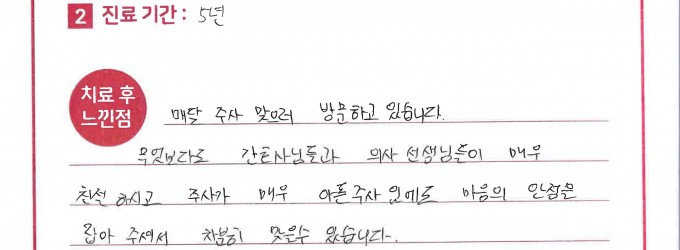 2 진료 기간 : 5년
치료 후
느낀점
매달 주사 맞으러 방문하고 있습니다.
무엇보다도 간호사님들과 의사 선생님들이 매우
친절하시고 주사가 매우 아픈 주사 임에도 마음의 안정을
잡아 주셔서 차분히 맞을수 있습니다.